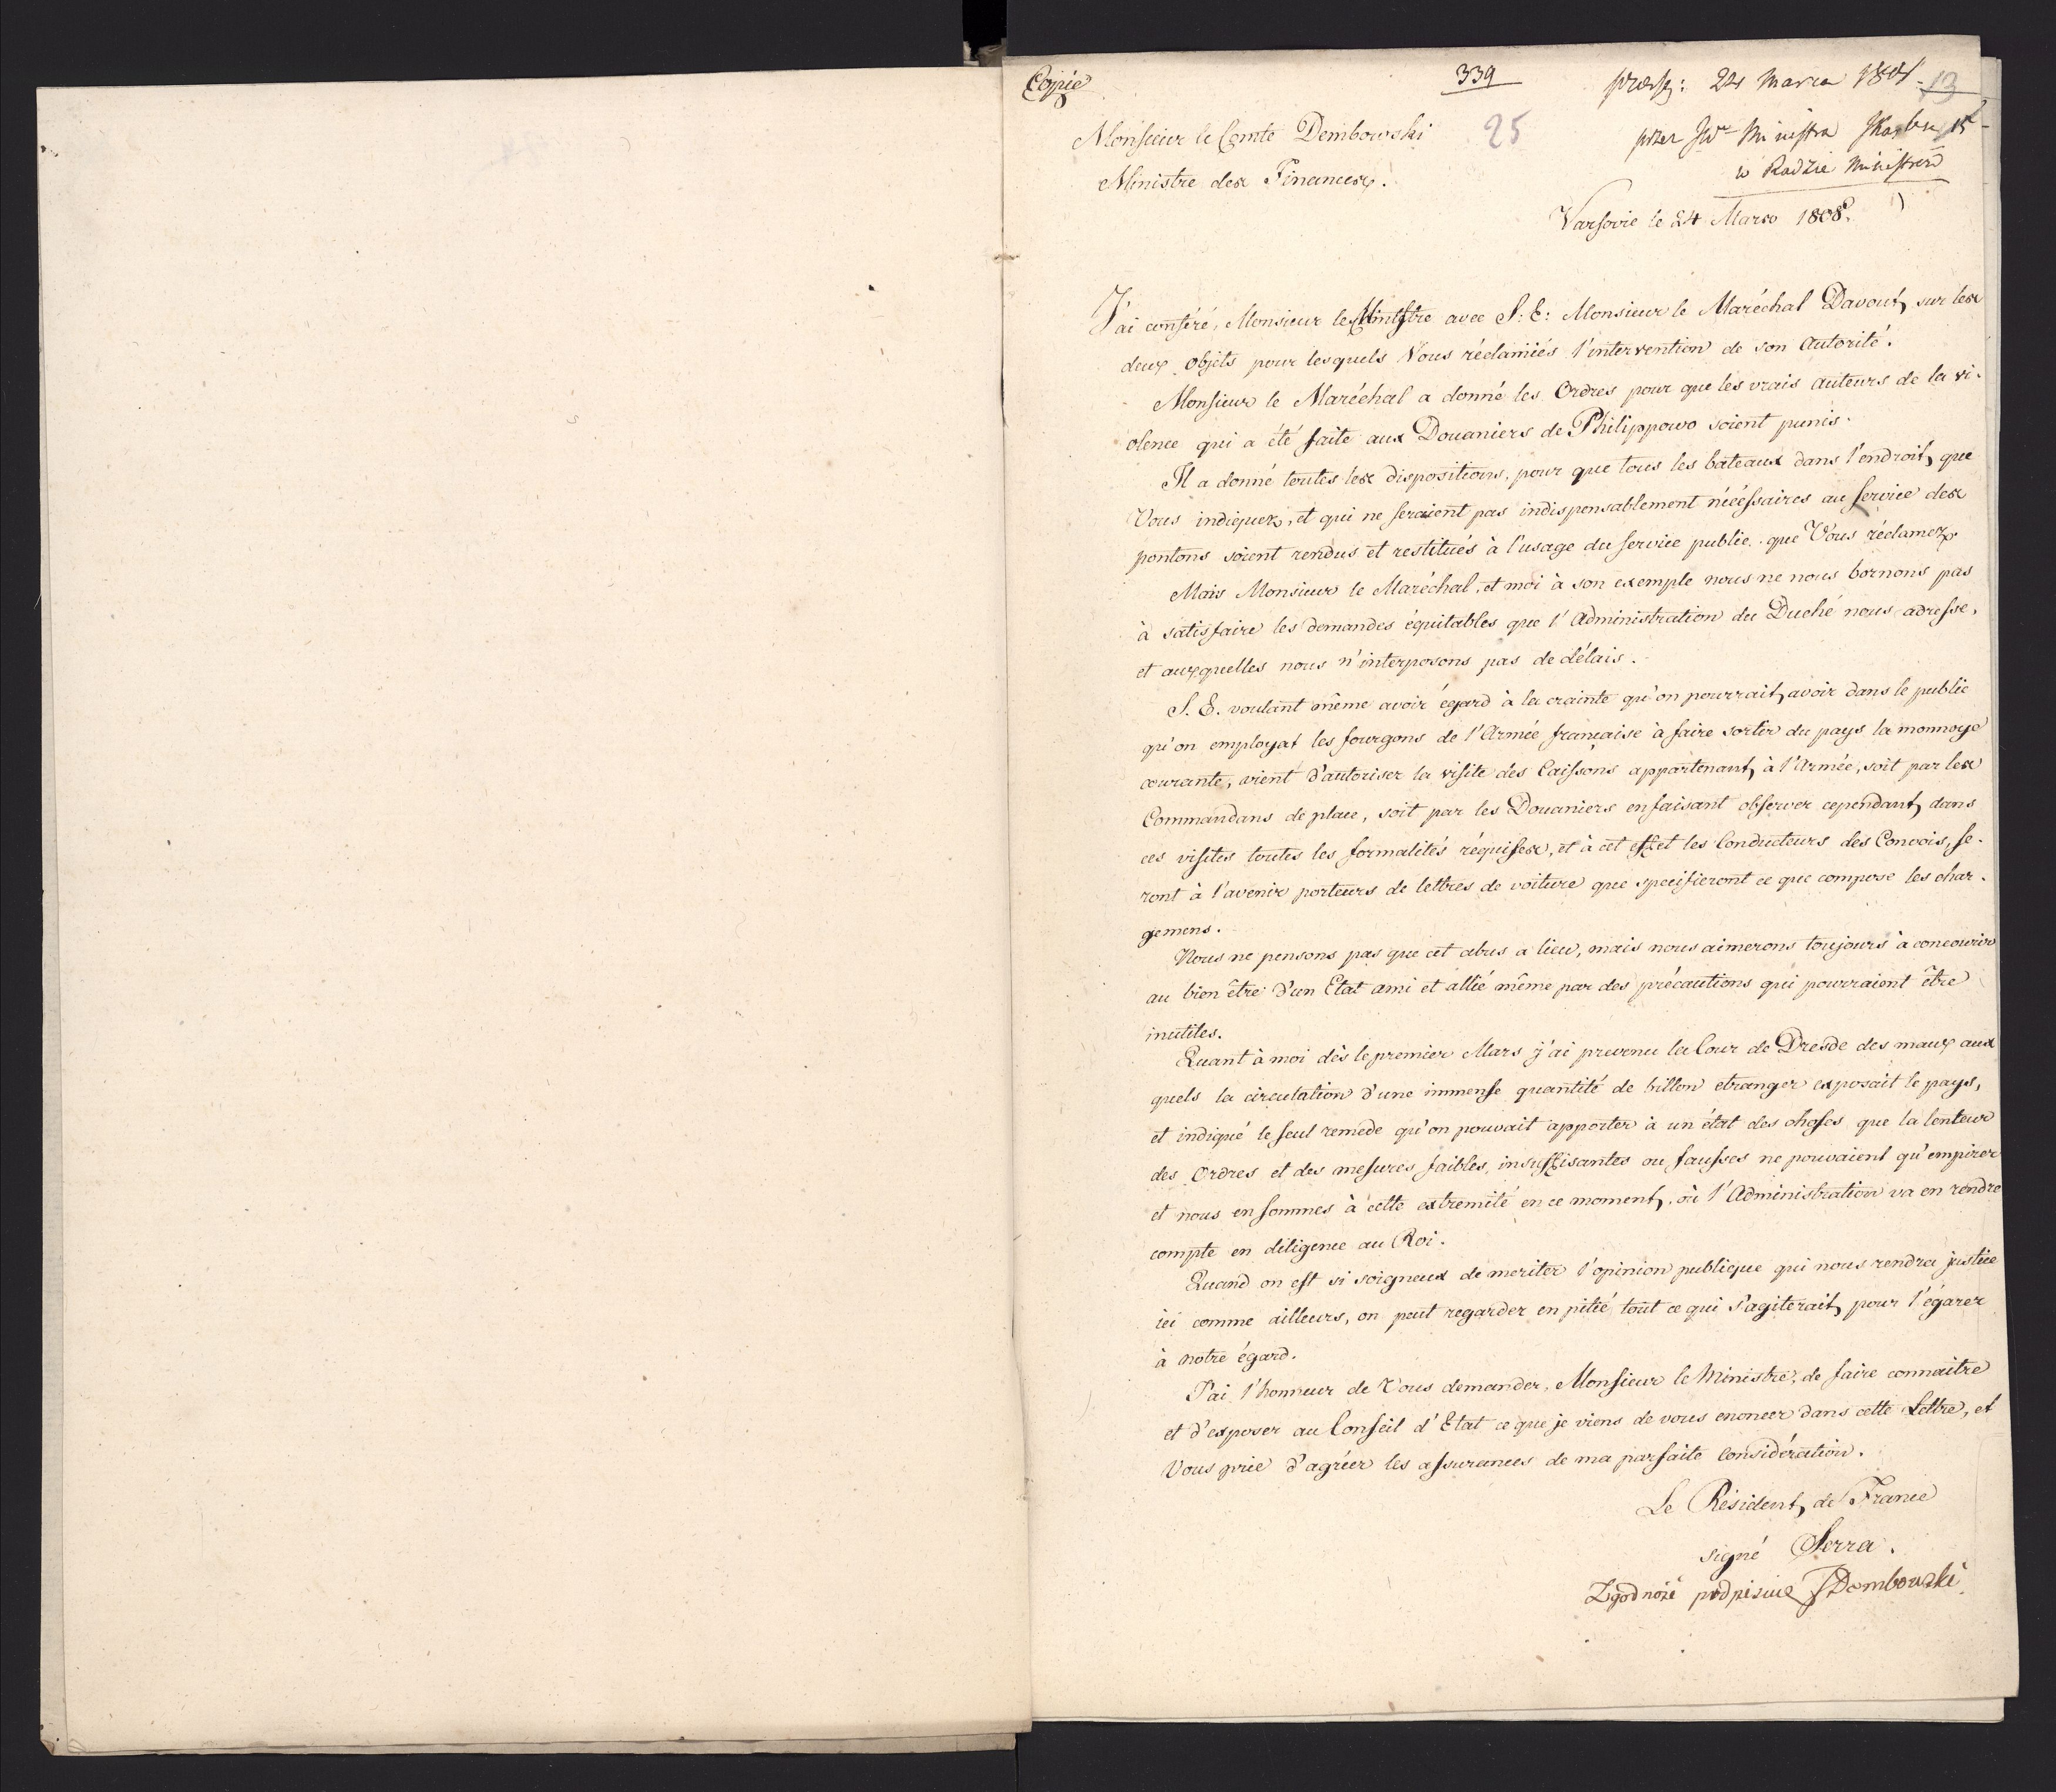 Copie
339
praes: 24 Marca 1808
13
przez JW Ministra Skarbu
w Radzie Ministrów
25
Monsieur le Comte Dembowski
Ministre des Finances.
Varsovie le 24 Mars 1808.
J'ai conféré, Monsieur le Ministre avec S: E: Monsieur le Maréchal Davout, sur les
deux objets pour lesquels Vous réclamiés l'intervention de son Autorité.
Monsieur le Maréchal a donné les Ordres pour que les vrais auteurs de la vi-
olence qui a été faite aux Douaniers de Philippowo soient punis.
Il a donné toutes les dispositions, pour que tous les bateaux dans l'endroit, que
Vous indiquez, et qui ne seraient pas indispensablement nécéssaires au service des
pontons soient rendus et restitués à l'usage du service public que Vous réclamez.
Mais Monsieur le Maréchal, et moi à son exemple nous ne nous bornons pas
à satisfaire les demandes équitables que l'Administration du Duché nous adresse,
et auxquelles nous n'interposons pas de délais.
S. E. voulant même avoir égard à la crainte qu'on pourrait avoir dans le public
qu'on employat les fourgons de l'Armée française à faire sortir du pays la monnoye
courante, vient d'autoriser la visite des Caissons appartenant à l'Armée, soit par les
Commandans de place, soit par les Douaniers en faisant observer cependant dans
ces visites toutes les formalités réquises, et à cet effet les Conducteurs des Convois, se-
ront à l'avenir porteurs de lettres de voiture que specifieront ce que compose les char-
gemens.
Nous ne pensons pas que cet abus a lieu, mais nous aimerons toujours à concourir
au bien être d'un Etat ami et allié même par des précautions qui pourraient être
inutiles.
Quant à moi dès le premier Mars j'ai prevenu la Cour de Dresde des maux aux
quels la circulation d'une immense quantité de billon etranger exposait le pays,
et indiqué le seul remede qu'on pouvait apporter à un état des choses que la lenteur
des Ordres et des mesures faibles, insuffisantes ou fausses ne pouvaient qu'empirer
et nous en sommes à cette extremité en ce moment, où l'Administration va en rendre
compte en diligence au Roi.
Quand on est si soigneux de meriter l'opinion publique qui nous rendra justice
ici comme ailleurs, on peut regarder en pitié tout ce qui s'agiterait pour l'égarer
à notre égard.
J'ai l'honneur de Vous demander, Monsieur le Ministre, de faire connaitre
et d'exposer au Conseil d'Etat ce que je viens de vous enoncer dans cette Lettre, et
Vous prie d'agréer les assurances de ma parfaite Considération.
Le Résident de France
signé Serra.
Zgodność podpisuię JDembowski